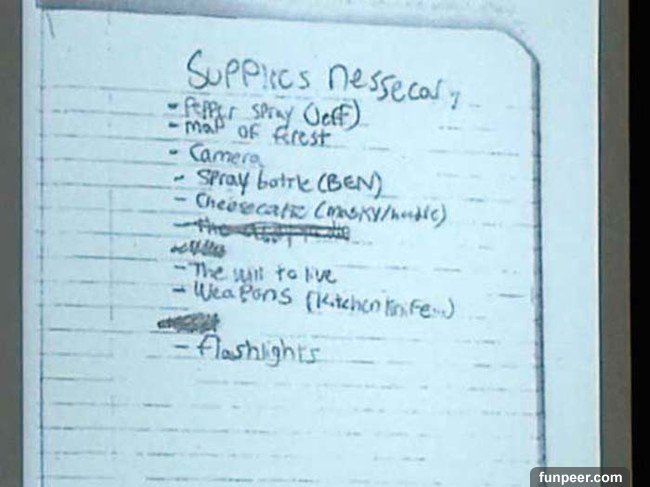 Supplies nessecary
- Pepper spray (Jeff)
- map of forest
- Camera
- Spray bottle (BEN)
- Cheesecake (masky/hoodie)
- The
- The will to live
- Weapons (kitchen knife...)
- flashlights
funpeer.com